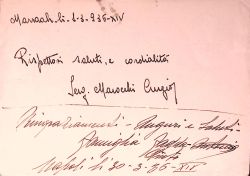 Massaua, li 3-3-936-XIV
Rispettosi saluti, e cordialità
Serg. Marocchi Luigi
Ringraziamenti - Auguri e Saluti
Famiglia
Napoli li 30-3-36-XIV